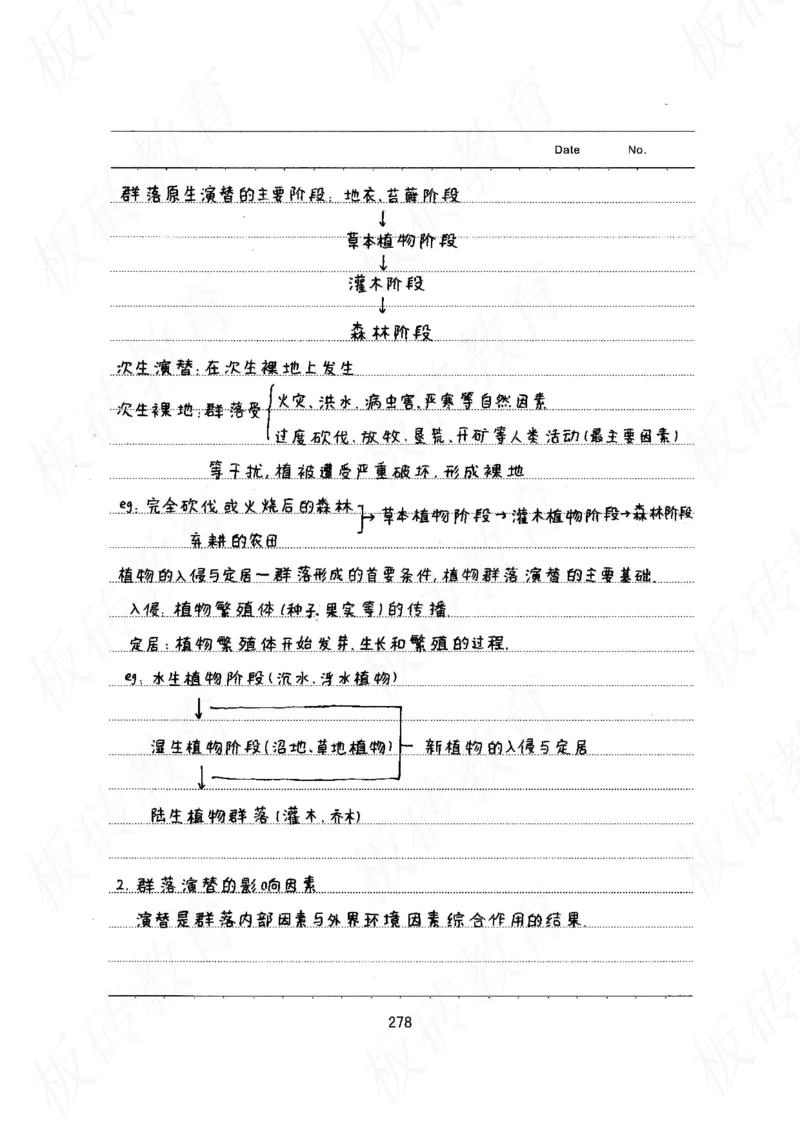 Date No.
群落原生演替的主要阶段：地衣、苔藓阶段
↓
草本植物阶段
↓
灌木阶段
↓
森林阶段
次生演替：在次生裸地上发生
次生裸地：群落受
火灾、洪水、病虫害、严寒等自然因素
过度砍伐、放牧、垦荒、开矿等人类活动(最主要因素)
等干扰，植被遭受严重破坏，形成裸地
eg：完全砍伐或火烧后的森林
弃耕的农田
→草本植物阶段→灌木植物阶段→森林阶段
植物的入侵与定居—群落形成的首要条件，植物群落演替的主要基础.
入侵：植物繁殖体(种子、果实等)的传播.
定居：植物繁殖体开始发芽、生长和繁殖的过程.
eg：水生植物阶段(沉水、浮水植物)
↓
湿生植物阶段(沼地、草地植物)
新植物的入侵与定居
↓
陆生植物群落(灌木、乔木)
2. 群落演替的影响因素
演替是群落内部因素与外界环境因素综合作用的结果.
278
板砖教育